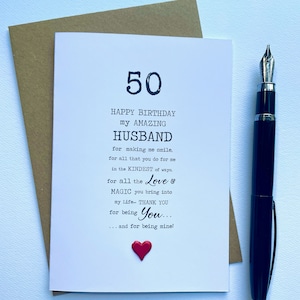 50
HAPPY BIRTHDAY
my AMAZING
HUSBAND
for making me smile,
for all that you do for me
in the KINDEST of ways
for all the Love &
MAGIC you bring into
my life~ THANK YOU
for being You...
... and for being mine!